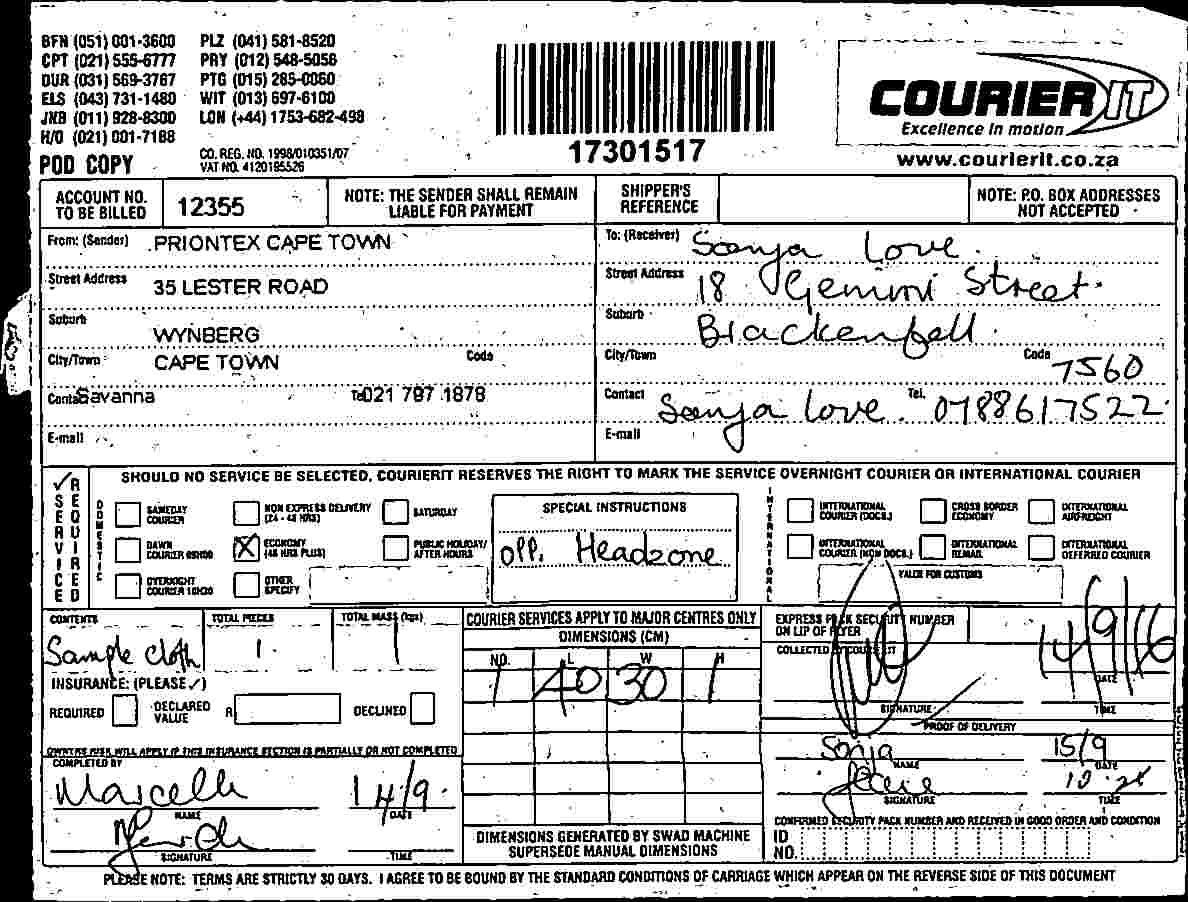 BFN (051) 001-3600 PLZ (041) 581-8520
CPT (021) 555-6777 PRY (012) 548-5056
DUR (031) 569-3767 PTG (015) 285-0060
ELS (043) 731-1480 WIT (013) 697-6100
JNB (011) 928-8300 LON (+44) 1753-682-498
H/O (021) 001-7188
POD COPY
CO. REG. NO. 1998/010351/07
VAT NO. 4120185526
17301517
COURIER IT
Excellence in motion
www.courierit.co.za
ACCOUNT NO. TO BE BILLED 12355
NOTE: THE SENDER SHALL REMAIN LIABLE FOR PAYMENT
SHIPPER'S REFERENCE
NOTE: P.O. BOX ADDRESSES NOT ACCEPTED
From: (Sender) PRIONTEX CAPE TOWN
Street Address 35 LESTER ROAD
Suburb WYNBERG
City/Town CAPE TOWN Code
Contact Savanna Tel 021 797 1878
E-mail
To: (Receiver) Sonja Love
Street Address 18 Gemini Street
Suburb Brackenfell
City/Town Code 7560
Contact Sonja Love Tel. 0788617522
E-mail
SERVICE REQUIRED
SHOULD NO SERVICE BE SELECTED, COURIERIT RESERVES THE RIGHT TO MARK THE SERVICE OVERNIGHT COURIER OR INTERNATIONAL COURIER
DOMESTIC
SAMEDAY COURIER
NON EXPRESS DELIVERY (24 - 48 HRS)
SATURDAY
DAWN COURIER 09H00
X ECONOMY (48 HRS PLUS)
PUBLIC HOLIDAY/ AFTER HOURS
OVERNIGHT COURIER 10H30
OTHER SPECIFY
SPECIAL INSTRUCTIONS
opp. Headzone
INTERNATIONAL
INTERNATIONAL COURIER (DOCS.)
CROSS BORDER ECONOMY
INTERNATIONAL AIRFREIGHT
INTERNATIONAL COURIER (NON DOCS.)
INTERNATIONAL REMAIL
INTERNATIONAL DEFERRED COURIER
VALUE FOR CUSTOMS
CONTENTS
Sample cloth
TOTAL PIECES
1
TOTAL MASS (kgs)
1
INSURANCE: (PLEASE ✓)
REQUIRED DECLARED VALUE R DECLINED
OWNERS RISK WILL APPLY IF THIS INSURANCE SECTION IS PARTIALLY OR NOT COMPLETED
COMPLETED BY
NAME
14/9
DATE
SIGNATURE TIME
COURIER SERVICES APPLY TO MAJOR CENTRES ONLY
DIMENSIONS (CM)
NO. L W H
1 40 30 1
DIMENSIONS GENERATED BY SWAD MACHINE SUPERSEDE MANUAL DIMENSIONS
EXPRESS PACK SECURITY NUMBER ON LIP OF FLYER
COLLECTED BY COURIERIT
14/9/16
DATE
SIGNATURE TIME
PROOF OF DELIVERY
Sonja 15/9
NAME DATE
SIGNATURE TIME
CONFIRMED SECURITY PACK NUMBER AND RECEIVED IN GOOD ORDER AND CONDITION
ID NO.
PLEASE NOTE: TERMS ARE STRICTLY 30 DAYS. I AGREE TO BE BOUND BY THE STANDARD CONDITIONS OF CARRIAGE WHICH APPEAR ON THE REVERSE SIDE OF THIS DOCUMENT